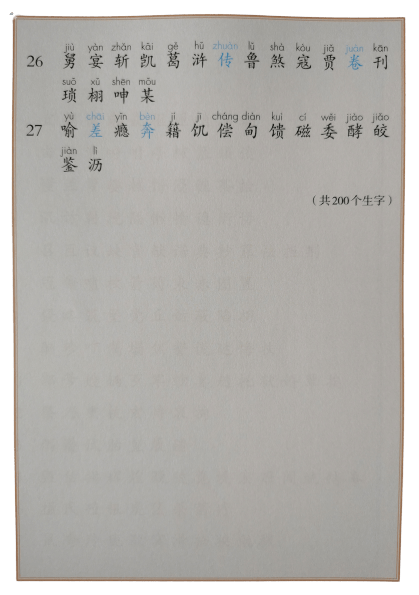 jiù yàn zhǎn kǎi gě hǔ zhuàn lǔ shà kòu jiǎ juàn kān
26 舅 宴 斩 凯 葛 浒 传 鲁 煞 寇 贾 卷 刊
suǒ xǔ shēn mǒu
琐 栩 呻 某
yù chāi yǐn bèn jí jī cháng diàn kuì cí wěi jiào jiǎo
27 喻 差 瘾 奔 籍 饥 偿 甸 馈 磁 委 酵 皎
jiàn lì
鉴 沥
（共200个生字）